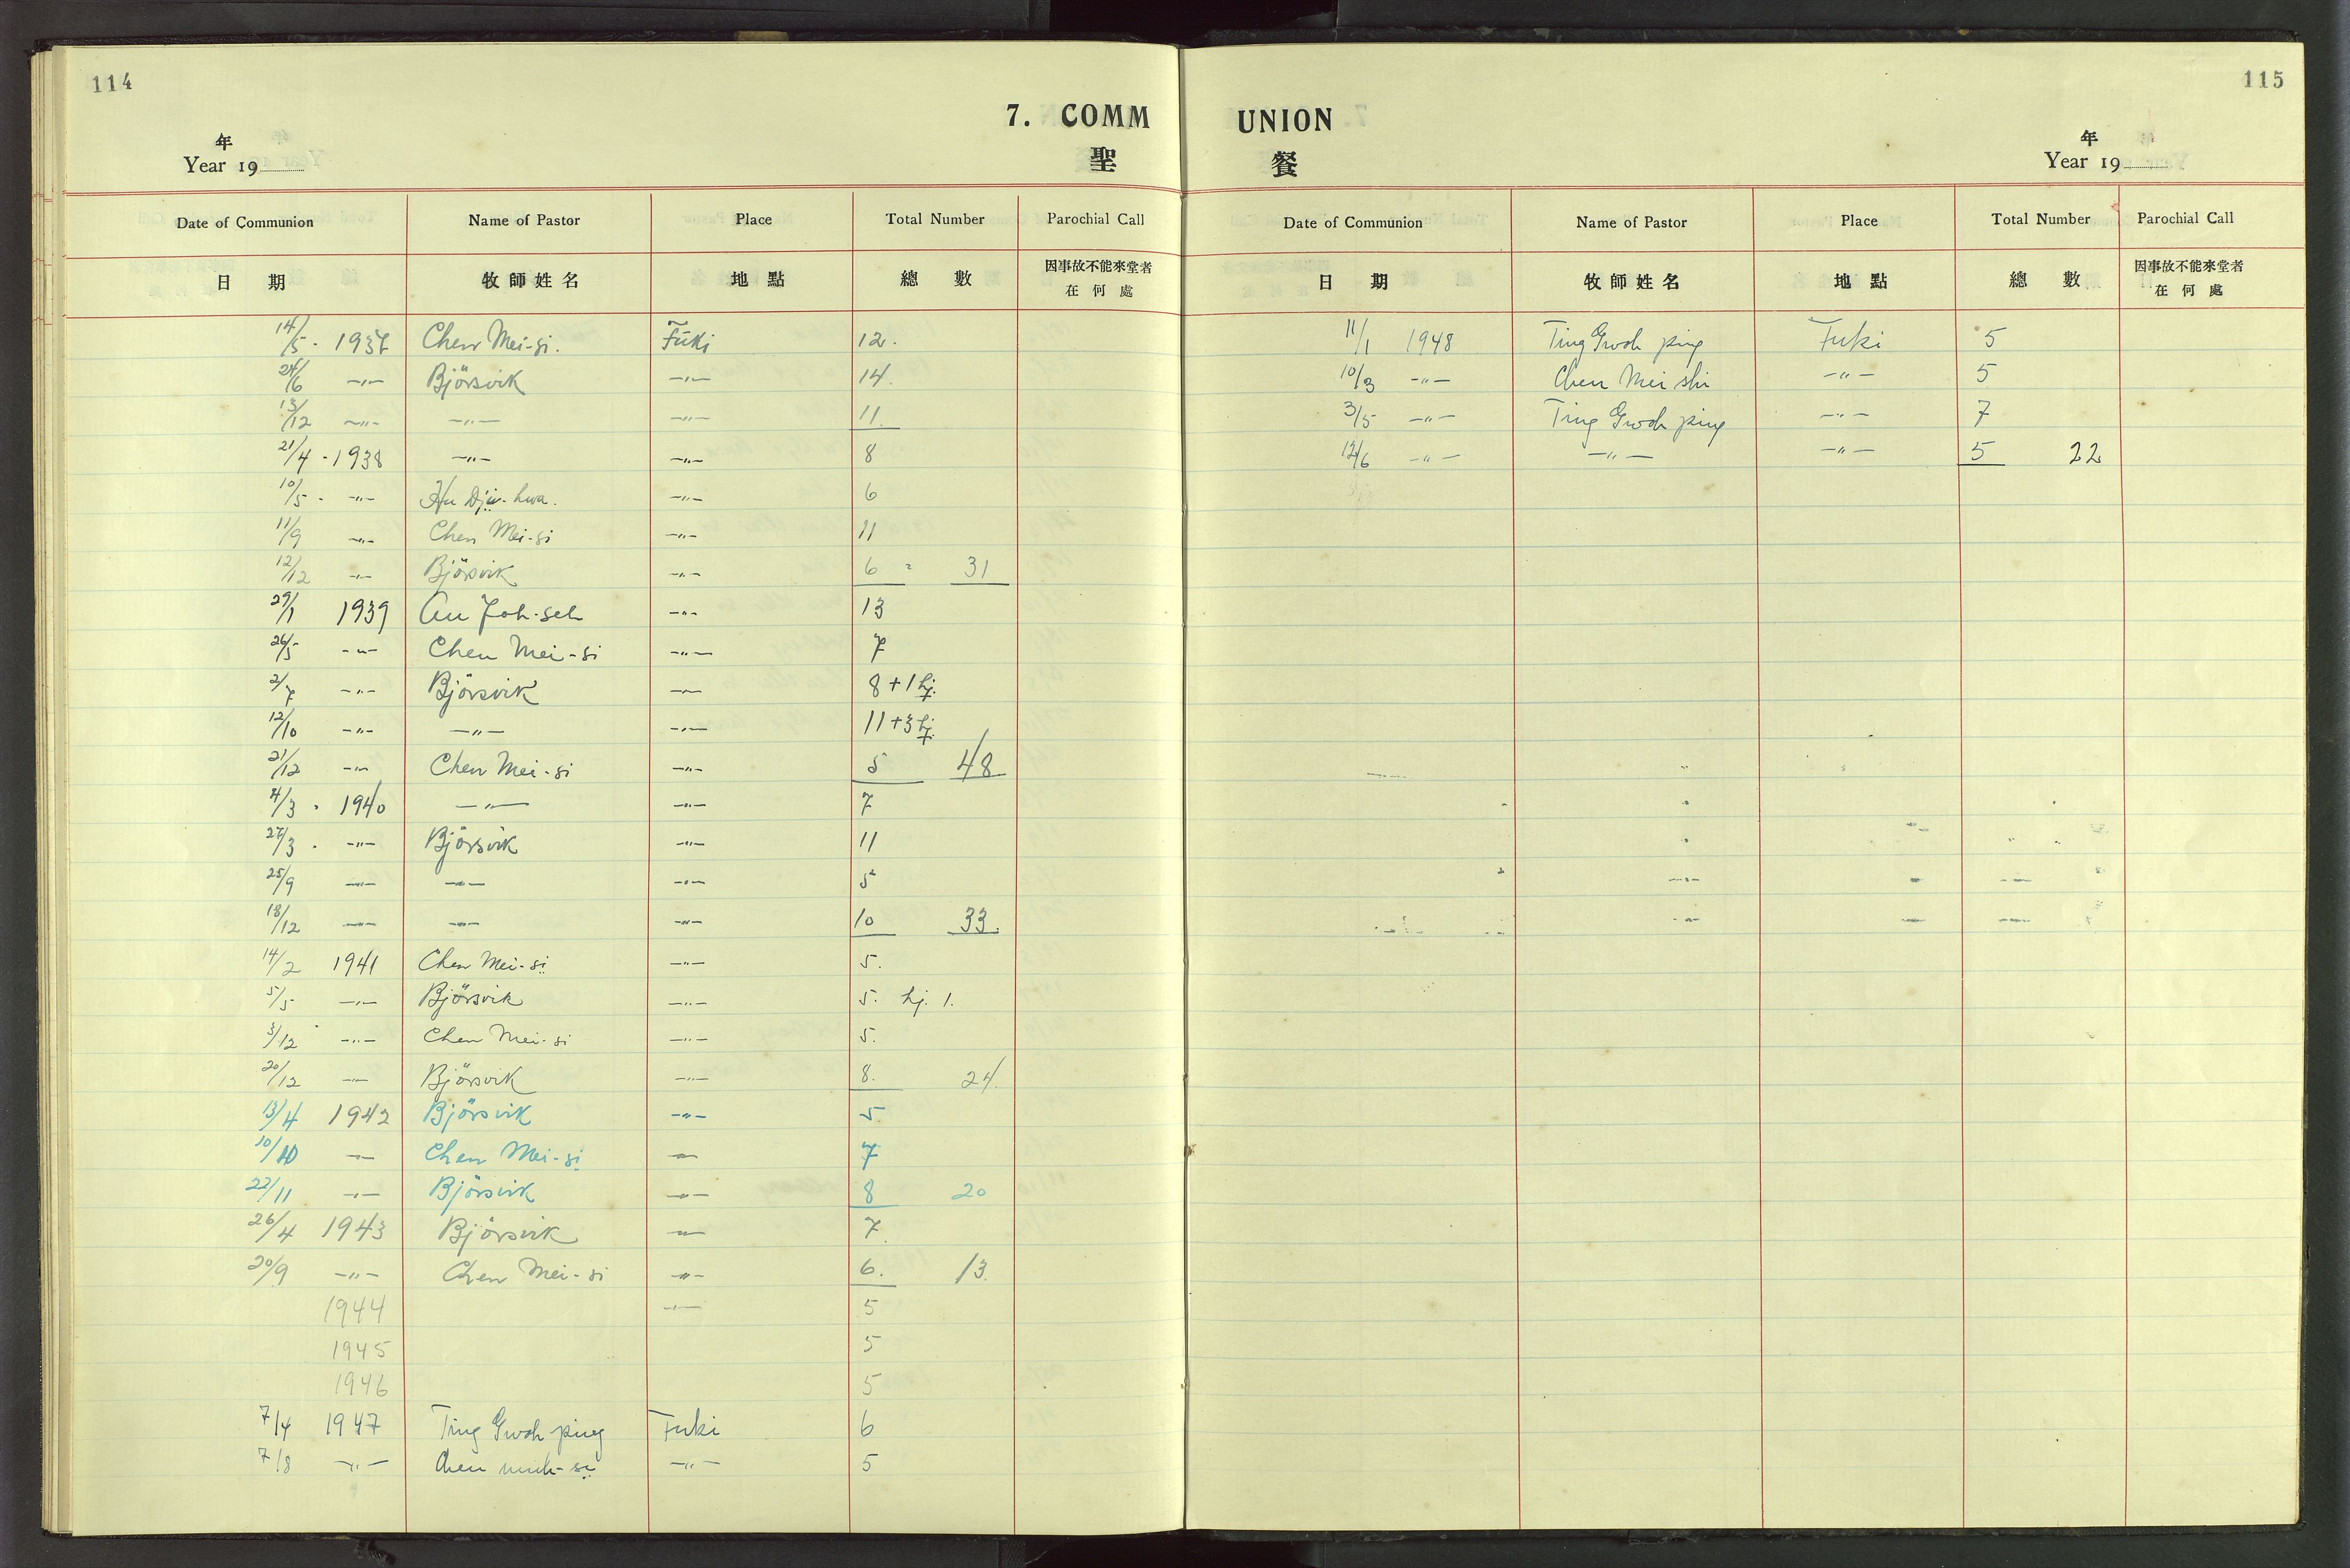 114
7. COMM
年
Year 19
聖
Date of Communion Name of Pastor Place Total Number Parochial Call
日 期 牧師姓名 地 點 總 數 因事故不能來堂者
在 何 處
14/5 · 1937 Chen Mei-si. Fuki 12.
24/6 –"– Björsvik –"– 14.
13/12 –"– –"– –"– 11.
21/4 · 1938 –"– –"– 8
10/5 · –"– Hu Djü-hwa. –"– 6
11/9 –"– Chen Mei-si –"– 11
12/12 –"– Björsvik –"– 6 = 31
29/1 1939 –"– 13
26/5 –"– Chen Mei-si –"– 7
2/7 –"– Björsvik –"– 8+1 hj.
12/10 –"– –"– –"– 11+3 hj.
21/12 –"– Chen Mei-si –"– 5 48
4/3 · 1940 –"– –"– 7
27/3 · –"– Björsvik –"– 11
25/9 –"– –"– –"– 5
18/12 –"– –"– –"– 10 33.
14/2 1941 Chen Mei-si –"– 5.
5/5 –"– Björsvik –"– 5. hj. 1.
3/12 –"– Chen Mei-si –"– 5.
20/12 –"– Björsvik –"– 8. 24.
13/4 1942 Björsvik –"– 5
10/10 –"– Chen Mei-si –"– 7
22/11 –"– Björsvik –"– 8 20
26/4 1943 Björsvik –"– 7.
20/9 –"– Chen Mei-si –"– 6. 13.
1944 –"– 5
1945 5
1946 5
7/4 1947 Ting Gwoh ping Fuki 6
7/8 –"– Chen –"– 5
115
UNION
年
Year 19
餐
Date of Communion Name of Pastor Place Total Number Parochial Call
日 期 牧師姓名 地 點 總 數 因事故不能來堂者
在 何 處
11/1 1948 Ting Gwoh ping Fuki 5
10/3 –"– Chen Mei shi –"– 5
3/5 –"– Ting Gwoh ping –"– 7
12/6 –"– –"– –"– 5 22